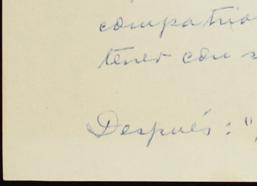 compatrio
tener con s
Después: "